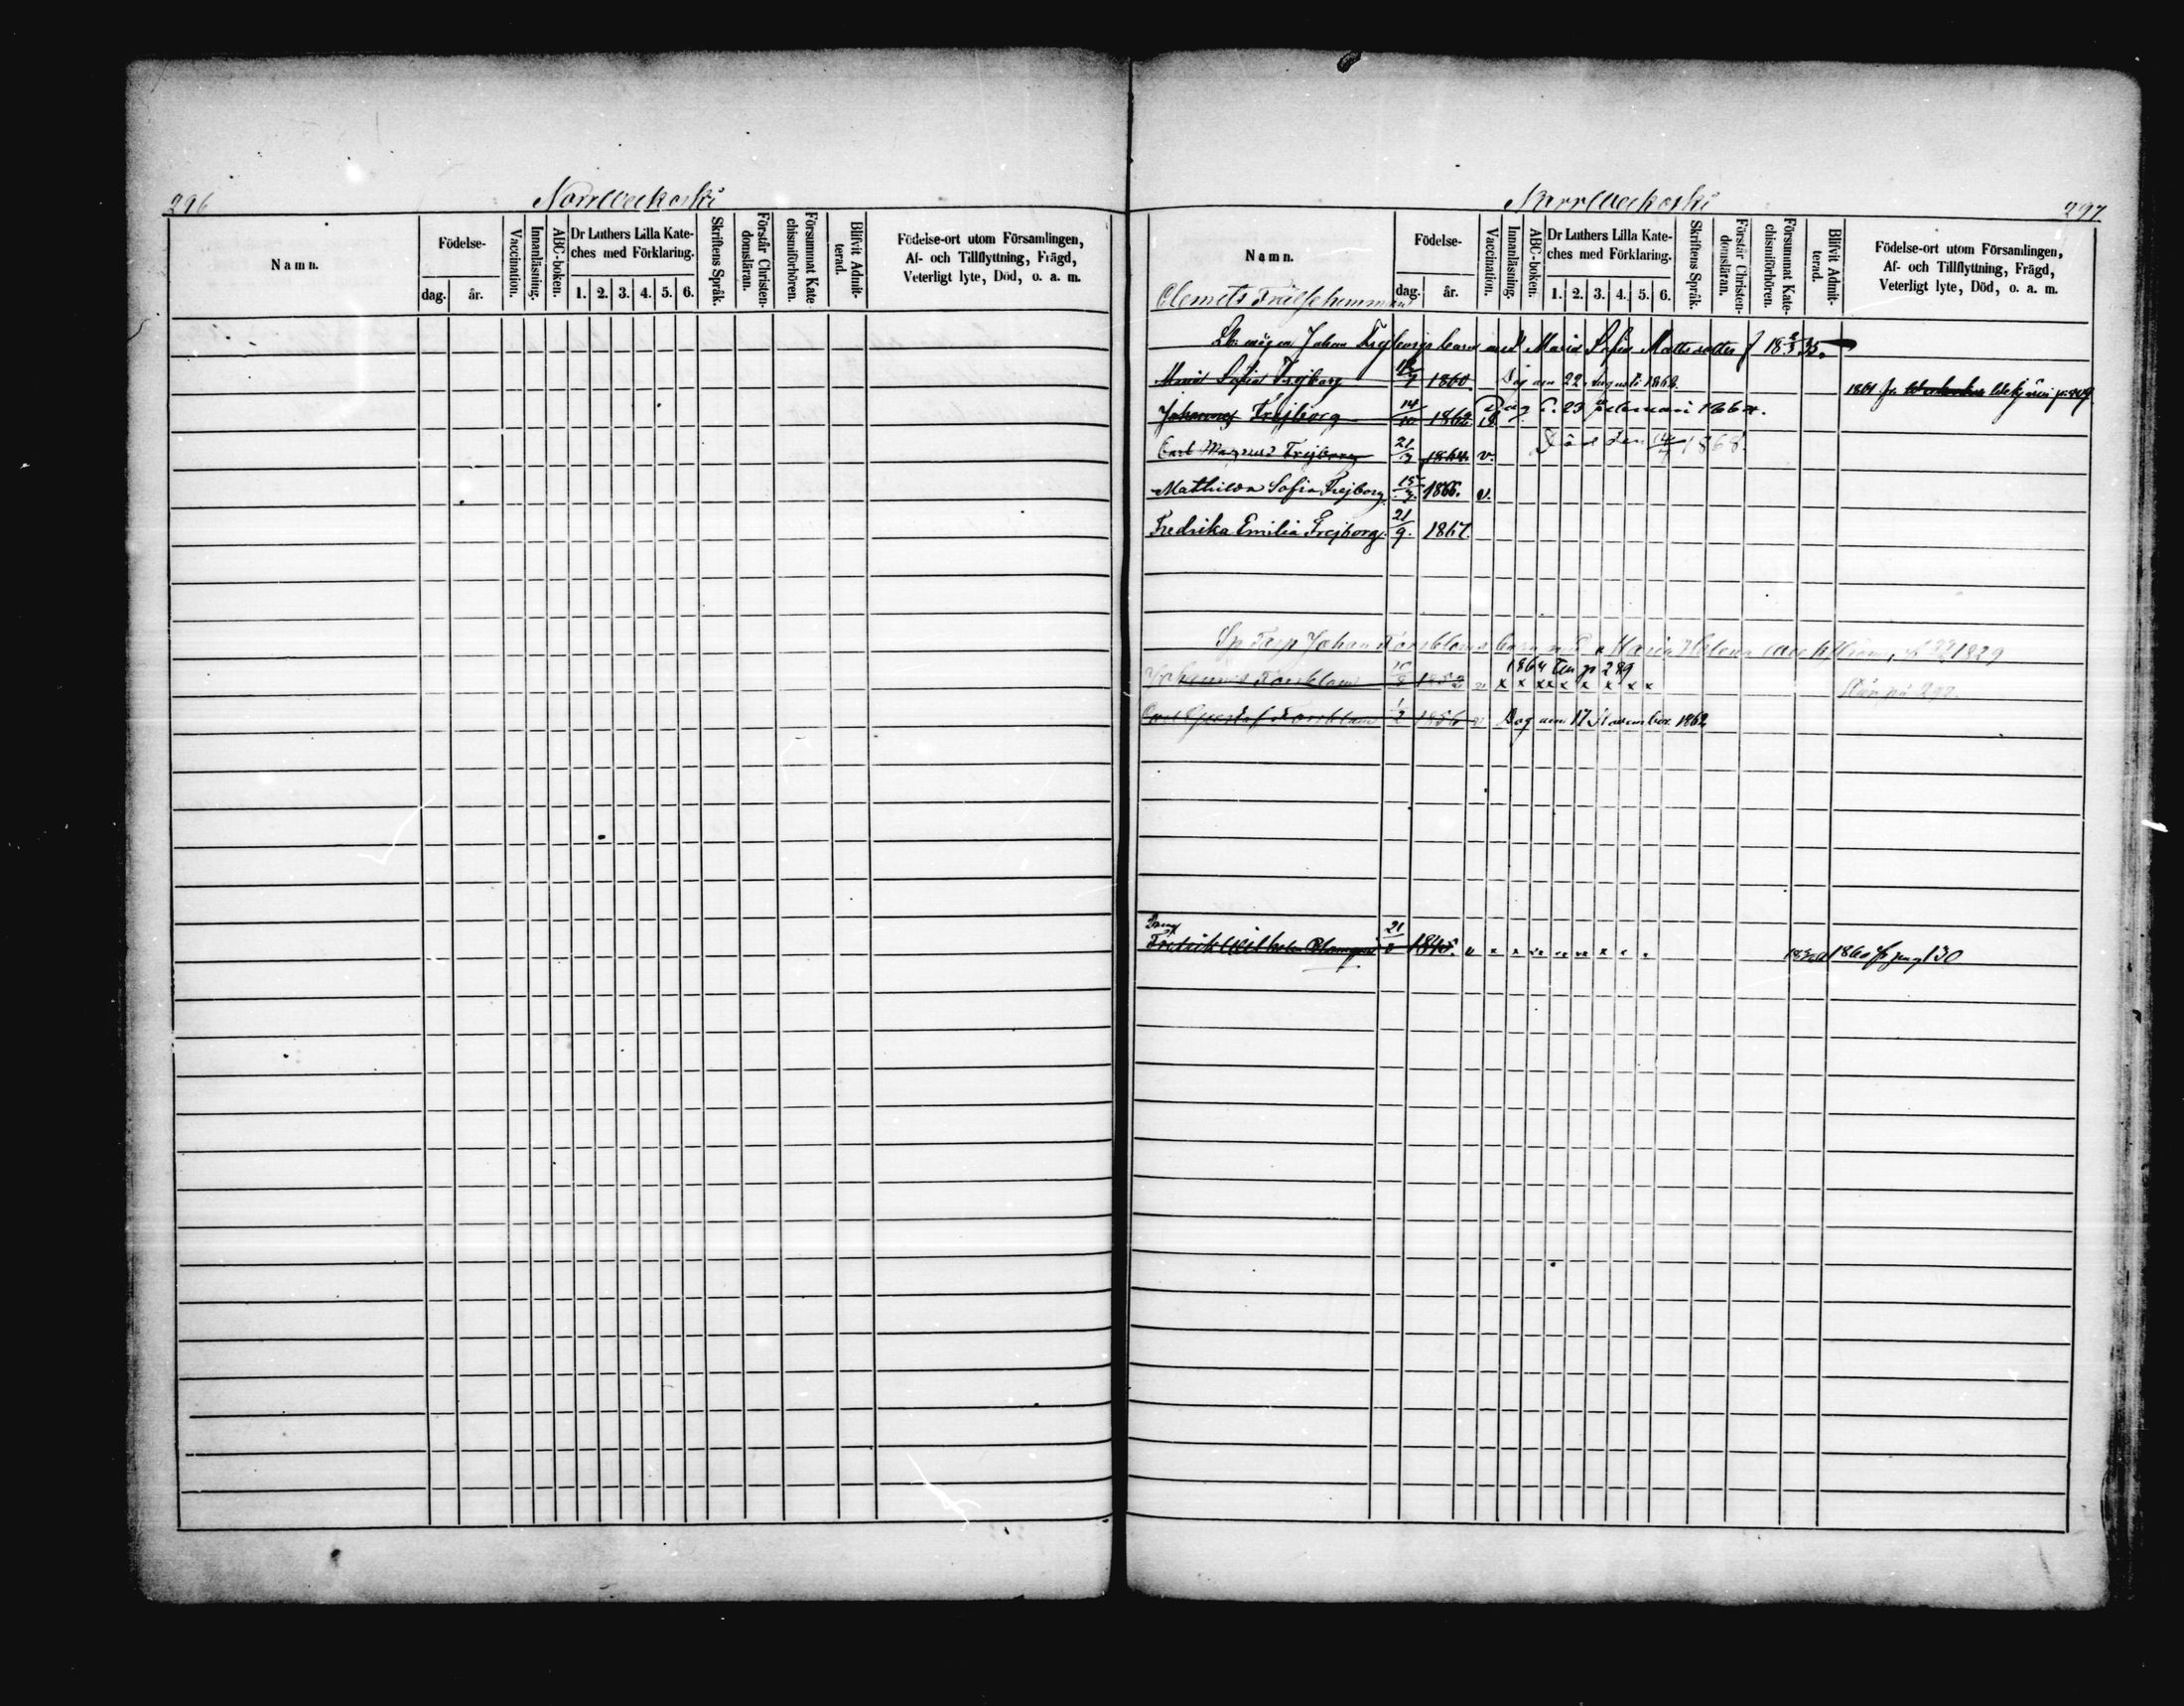 296
Norr Veckoski
Namn.
Födelse-
dag.
år.
Vaccination.
Innanläsning.
ABC-boken.
Dr Luthers Lilla Kate-
ches med Förklaring.
1. 2. 3. 4. 5. 6.
Skriftens Språk.
Förstår Christen-
domsläran.
Försummat Kate-
chismiförhören.
Blifvit Admit-
terad.
Födelse-ort utom Församlingen,
Af- och Tillflyttning, Frägd,
Veterligt lyte, Död, o. a. m.
Norr Veckoski
297
Namn.
Födelse-
dag.
år.
Vaccination.
Innanläsning.
ABC-boken.
Dr Luthers Lilla Kate-
ches med Förklaring.
1. 2. 3. 4. 5. 6.
Skriftens Språk.
Förstår Christen-
domsläran.
Försummat Kate-
chismiförhören.
Blifvit Admit-
terad.
Födelse-ort utom Församlingen,
Af- och Tillflyttning, Frägd,
Veterligt lyte, Död, o. a. m.
Clemets Frälsehemman
Johan Frejborgs barn med Maria Sofia Mattsdotter f 18 2/3 35.
Maria Sofia Frejborg 1860. Dog den 22 Augusti 1862. 1861 fr.
Johannes Frejborg 14/10 1862 Dog d. 23 Februari 1864.
Carl Magnus Frejborg 21/3 1864. v. Död den 1868.
Mathilda Sofia Frejborg 1866. v.
Fredrika Emilia Frejborg. 21/9. 1867.
Johan Forsbloms barn med Maria Helena 1829
1864 p 289
Johannes Forsblom x x x x x x x x x på 292.
Carl Gustaf Forsblom 1/2 1856 Dog den 17 November 1862
Dreng
Fredrik Wilhelm Blomqvist 21 1845. v 1860 fr pag 130